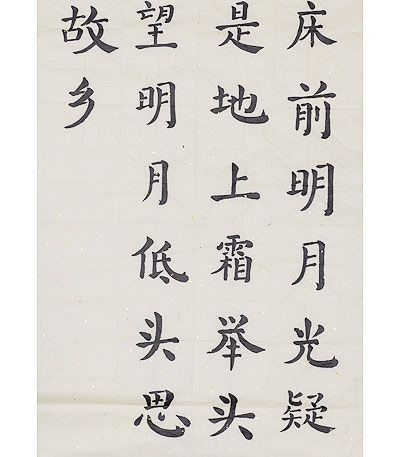 床前明月光疑
是地上霜举头
望明月低头思
故乡